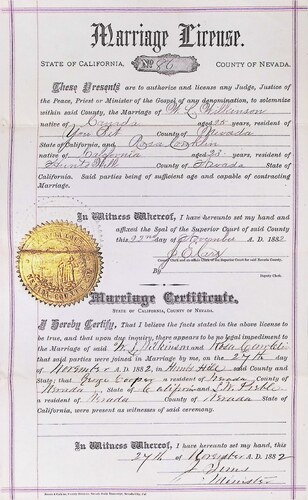 Marriage License.
STATE OF CALIFORNIA, No. 86 COUNTY OF NEVADA.
These Presents are to authorize and license any Judge, Justice
of the Peace, Priest or Minister of the Gospel of any denomination, to solemnize
within said County, the Marriage of W. L. Wilkinson
native of Canada aged 25 years, resident of
You Bet County of Nevada
State of California, and Rosa Conghlin
native of California aged 23 years, resident of
Hunts Hill County of Nevada State of
California. Said parties being of sufficient age and capable of contracting
Marriage.
In Witness Whereof, I have hereunto set my hand and
affixed the Seal of the Superior Court of said County
this 22nd of November A.D. 1882
County Clerk and ex officio Clerk of the Superior Court for said Nevada County.
By
Deputy Clerk.
Marriage Certificate.
STATE OF CALIFORNIA, COUNTY OF NEVADA.
I Hereby Certify, That I believe the facts stated in the above license to
be true, and that upon due inquiry, there appears to be no legal impediment to
the Marriage of said W. L. Wilkinson and Rosa Conghlin
that said parties were joined in Marriage by me, on the 27th day
of November A.D. 1882, in Hunts Hill said County and
State; that George Cooper a resident of Nevada County of
Nevada State of California and
a resident of Nevada County of Nevada State of
California, were present as witnesses of said ceremony.
In Witness Whereof, I have hereunto set my hand, this
27th of November A.D. 1882
Minister